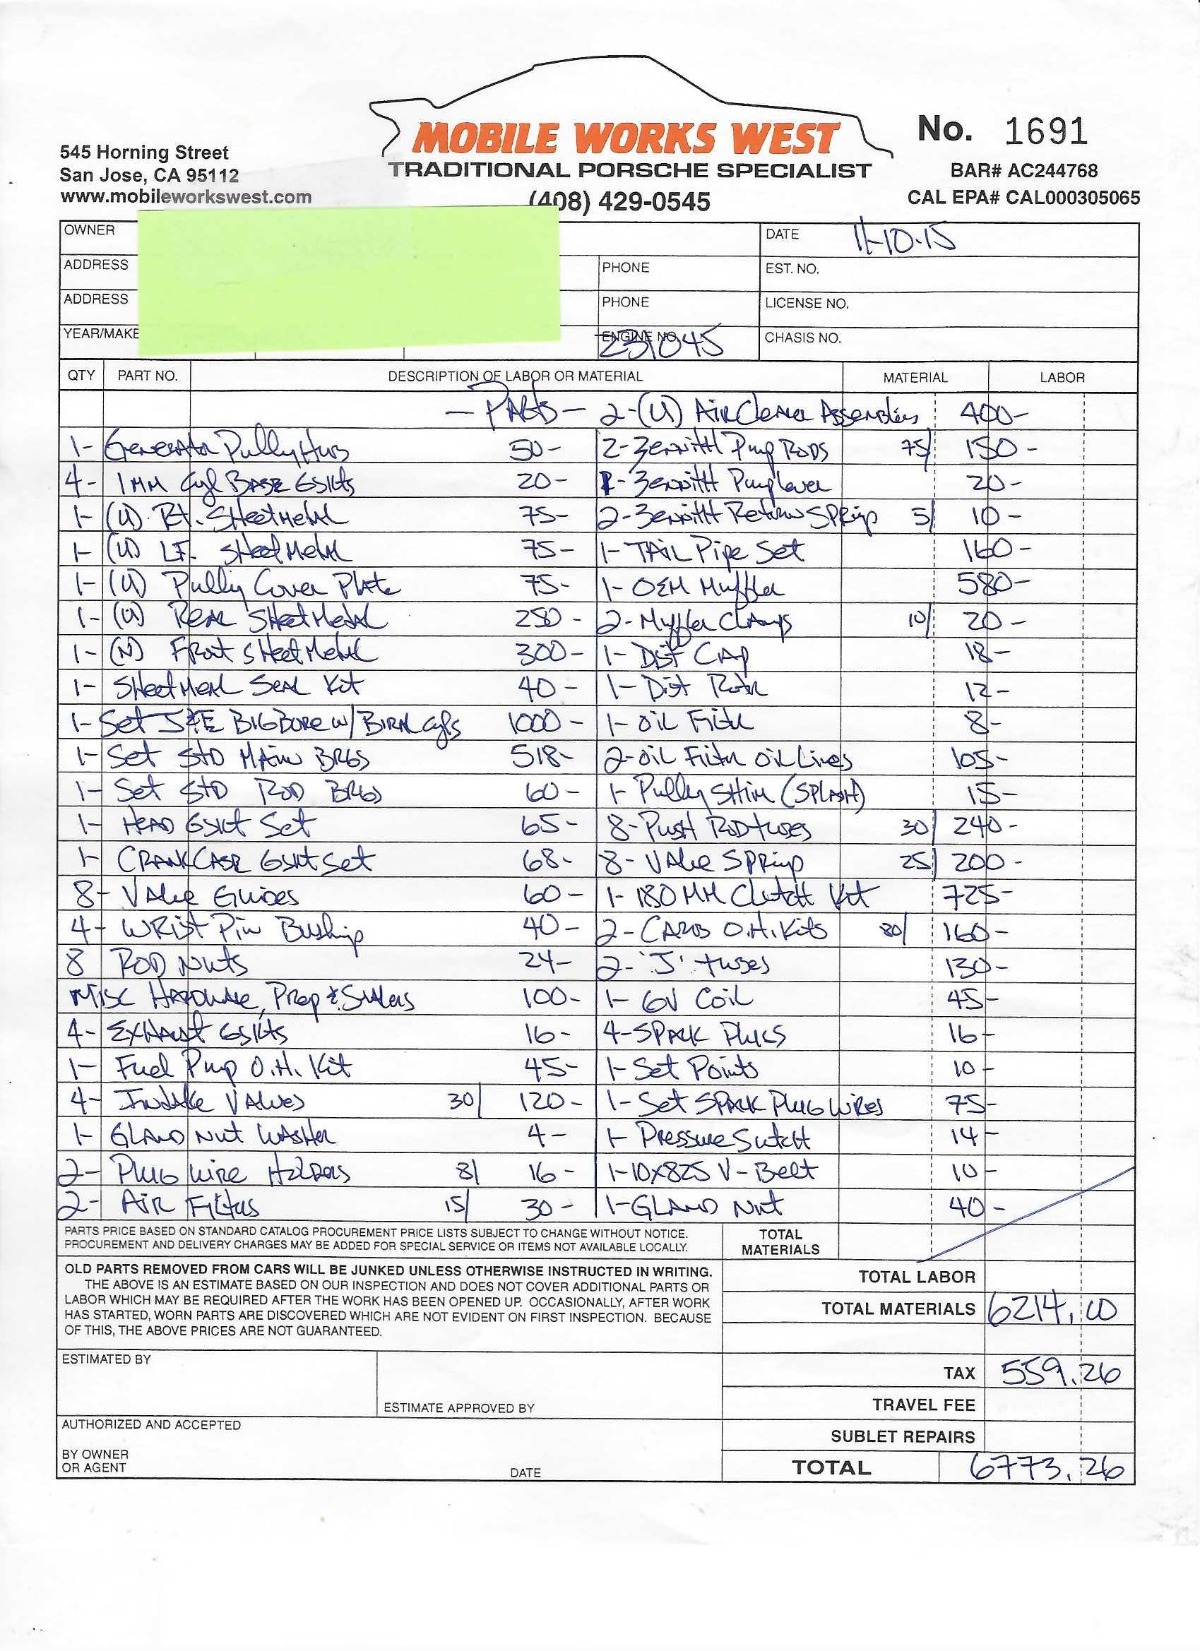 MOBILE WORKS WEST
TRADITIONAL PORSCHE SPECIALIST
(408) 429-0545
545 Horning Street
San Jose, CA 95112
www.mobileworkswest.com
No. 1691
BAR# AC244768
CAL EPA# CAL000305065
OWNER DATE 11-10-15
ADDRESS PHONE EST. NO.
ADDRESS PHONE LICENSE NO.
YEAR/MAKE ENGINE NO. 231045 CHASIS NO.
QTY PART NO. DESCRIPTION OF LABOR OR MATERIAL MATERIAL LABOR
- PARTS - 2-(U) Air Cleaner Assemblies 400-
1- Generator Pully Hub 50- 2-Zennith Pump Rods 75/ 150-
4- 1MM Cyl Base Gskts 20- 1-Zennith Pump Lever 20-
1- (U) Rt. Sheetmetal 75- 2-Zennith Return Spring 5/ 10-
1- (U) LF. Sheetmetal 75- 1-Tail Pipe Set 160-
1- (U) Pully Cover Plate 75- 1-OEM Muffler 580-
1- (U) Rear Sheetmetal 250- 2-Muffler Clamps 10/ 20-
1- (N) Front Sheetmetal 300- 1-Dist Cap 18-
1- Sheetmetal Seal Kit 40- 1-Dist Rotor 12-
1- Set Big Bore w/ Biral Cyls 1000- 1-Oil Filter 8-
1- Set STD Main BRGS 518- 2-Oil Filter Oil Lines 105-
1- Set STD Rod BRGS 60- 1-Pully Shim (SPLASH) 15-
1- Head Gskt Set 65- 8-Push Rod tubes 30/ 240-
1- Crankcase Gskt Set 68- 8-Valve Spring 25/ 200-
8- Valve Guides 60- 1-180MM Clutch Kit 725-
4- Wrist Pin Bushing 40- 2-Carb O.H. Kits 80/ 160-
8 Rod Nuts 24- 2-'J' tubes 130-
Misc Hardware, Prep & Sealers 100- 1-6V Coil 45-
4- Exhaust Gskts 16- 4-Spark Plugs 16-
1- Fuel Pump O.H. Kit 45- 1-Set Points 10-
4- Intake Valves 30/ 120- 1-Set Spark Plug Wires 75-
1- Gland Nut Washer 4- 1-Pressure Switch 14-
2- Plug Wire Holders 8/ 16- 1-10x825 V-Belt 10-
2- Air Filters 15/ 30- 1-Gland Nut 40-
PARTS PRICE BASED ON STANDARD CATALOG PROCUREMENT PRICE LISTS SUBJECT TO CHANGE WITHOUT NOTICE.
PROCUREMENT AND DELIVERY CHARGES MAY BE ADDED FOR SPECIAL SERVICE OR ITEMS NOT AVAILABLE LOCALLY.
TOTAL MATERIALS
OLD PARTS REMOVED FROM CARS WILL BE JUNKED UNLESS OTHERWISE INSTRUCTED IN WRITING.
THE ABOVE IS AN ESTIMATE BASED ON OUR INSPECTION AND DOES NOT COVER ADDITIONAL PARTS OR
LABOR WHICH MAY BE REQUIRED AFTER THE WORK HAS BEEN OPENED UP. OCCASIONALLY, AFTER WORK
HAS STARTED, WORN PARTS ARE DISCOVERED WHICH ARE NOT EVIDENT ON FIRST INSPECTION. BECAUSE
OF THIS, THE ABOVE PRICES ARE NOT GUARANTEED.
TOTAL LABOR
TOTAL MATERIALS 6214.00
ESTIMATED BY
ESTIMATE APPROVED BY
TAX 559.26
TRAVEL FEE
SUBLET REPAIRS
AUTHORIZED AND ACCEPTED
BY OWNER
OR AGENT DATE
TOTAL 6773.26